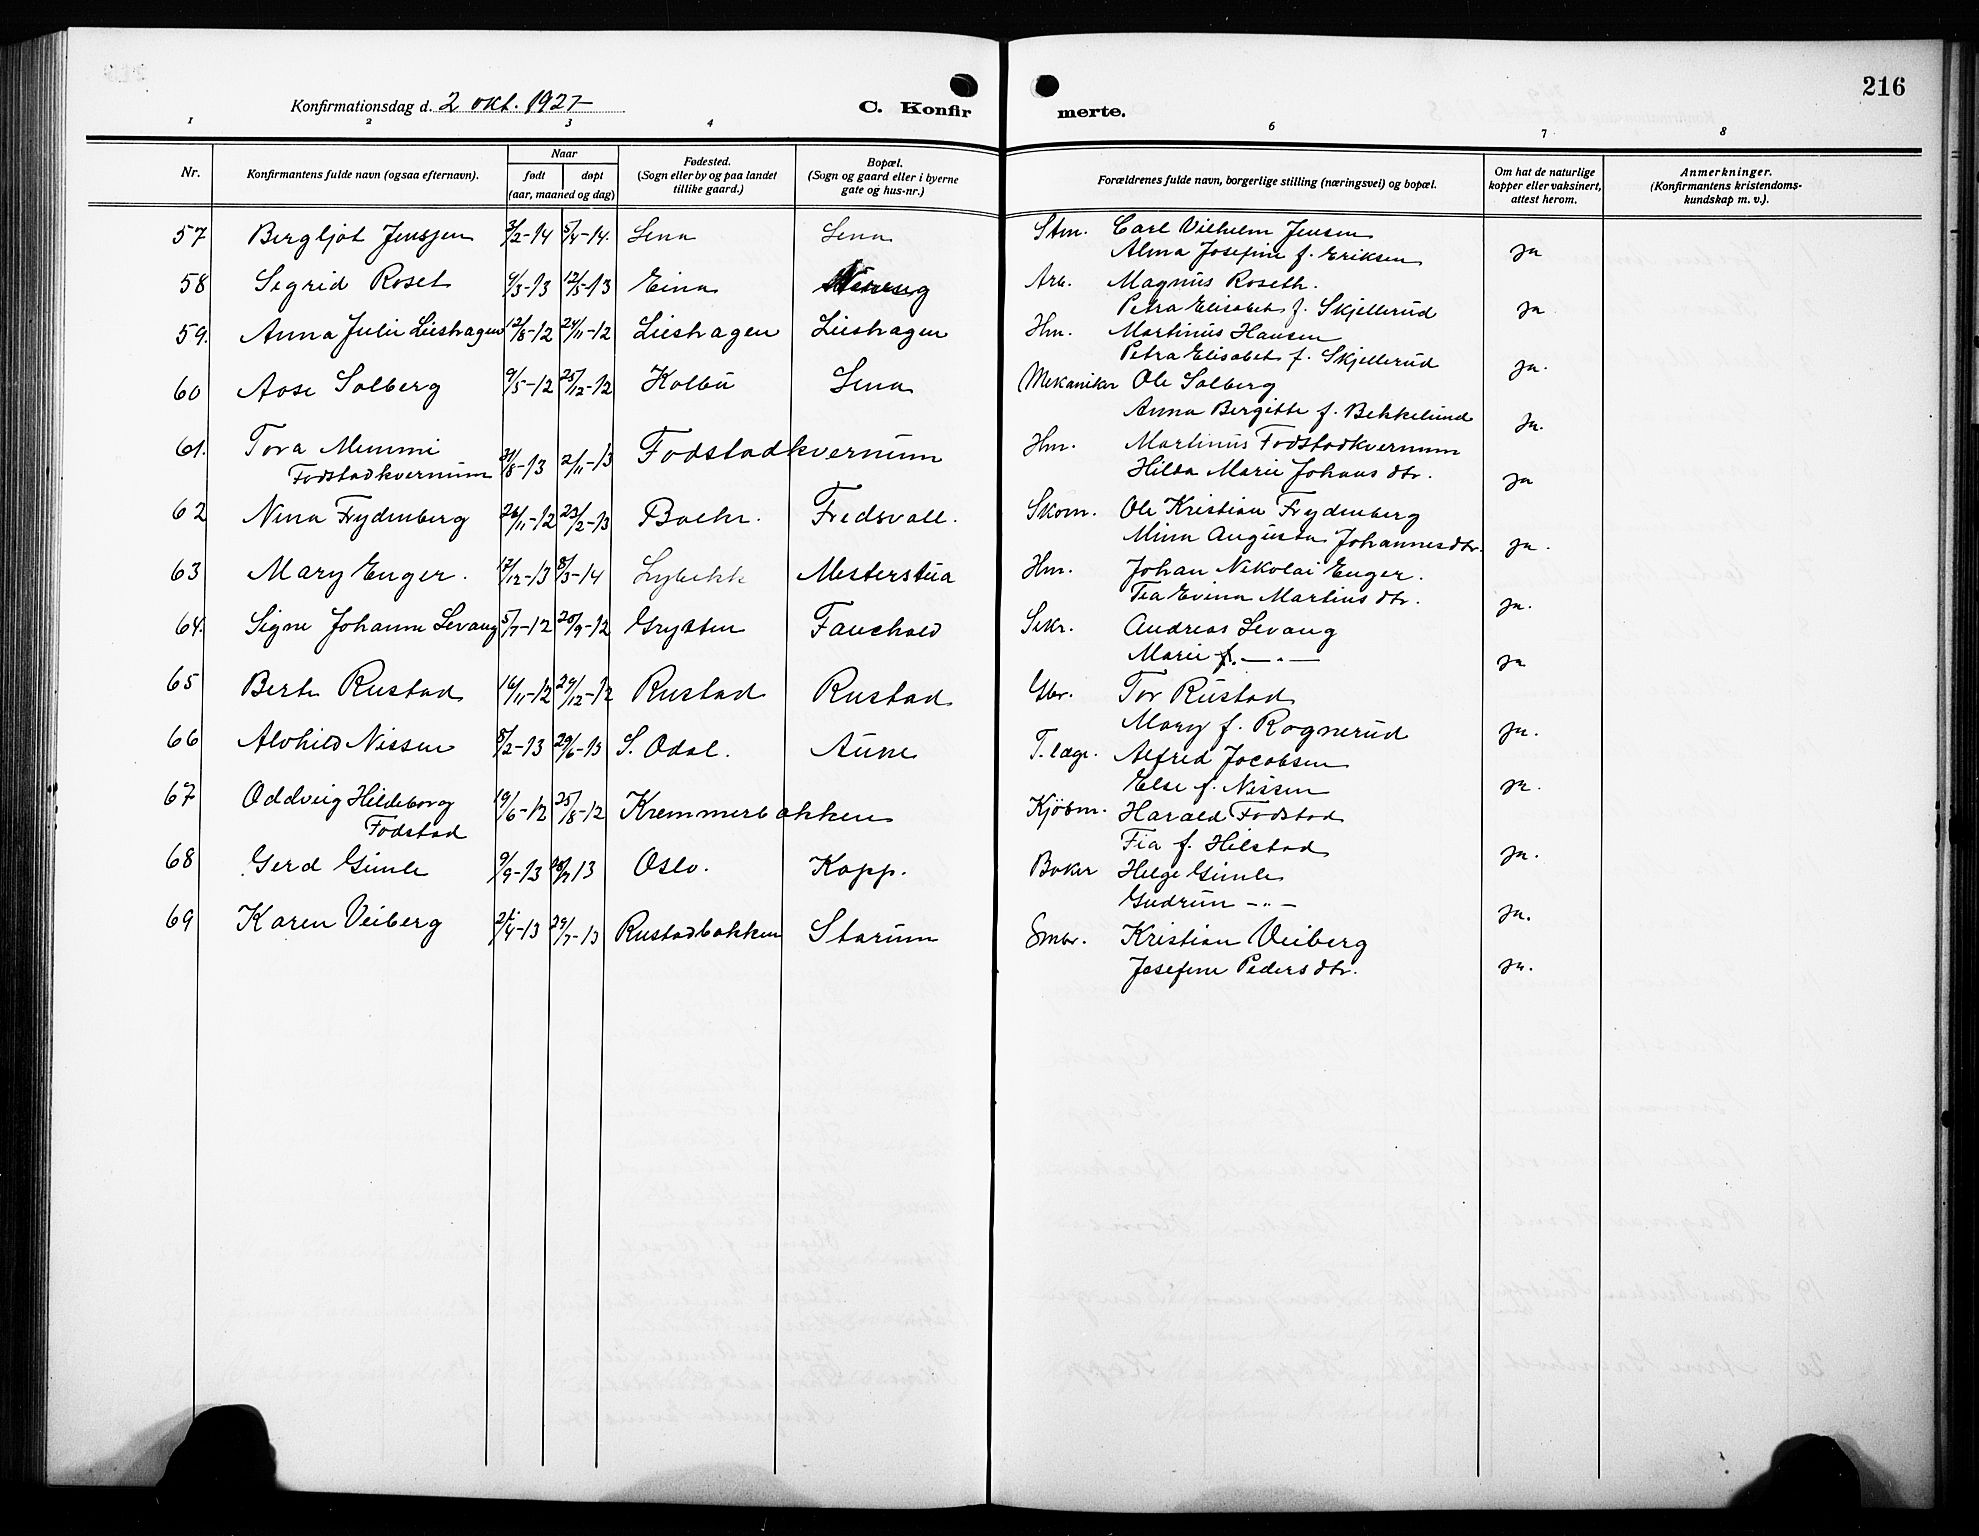 216
Konfirmationsdag d. 2 okt. 1927
C. Konfir merte.
1 2 3 4 6 7 8
Nr. Konfirmantens fulde navn (ogsaa efternavn). Naar født døpt (aar, maaned og dag) Fødested. (Sogn eller by og paa landet tillike gaard.) Bopæl. (Sogn og gaard eller i byerne gate og hus-nr.) Forældrenes fulde navn, borgerlige stilling (næringsvei) og bopæl. Om hat de naturlige kopper eller vaksinert, attest herom. Anmerkninger. (Konfirmantens kristendoms-kundskap m. v.).
57 Bergljot Jenssen 3/2-14 5/4-14. Lena Lena Stm. Carl Vilhelm Jensen
Alma Josefine f. Eriksen ja
58 Sigrid Roset 9/3-13 12/5-13 Eina Arb. Magnus Roseth.
Petra Elisabet f. Skjellerud ja
59. Anna Julie Lieshagen 12/8-12 24/11-12 Lieshagen Lieshagen Hm. Martinus Hansen
Petra Elisabet f. Skjellerud ja.
60 Aase Solberg 9/5-12 25/12-12 Kolbu Lena Mekaniker Ole Solberg
Anna Bergitte f. Bekkelund ja.
61. Tora Memmi Hm. Martinus Fodstadkvernum
Fodstadkvernum 31/8-13 2/11-13 Fodstadkvernum Hilda Marie Johans dtr. ja
62 Nina Frydenberg 26/11-12 23/2-13 Baehr. Fredsvoll. Skom. Ole Kristian Frydenberg
Mina Augusta Johannesdtr. ja.
63 Mary Enger. 17/12-13 8/3-14 Lybekk Mesterstua Hm. Johan Nikolai Enger.
Tea Evina Martins dtr. ja.
64. Signe Johanne Levang 5/7-12 20/9-12 Grytten Fauchald Sekr. Andreas Levang
Marie f. -"- ja
65 Berte Rustad 16/11-12 29/12-12 Rustad Rustad Gbr. Tor Rustad
Mary f. Rognerud ja.
66 Alvhild Nissen 8/2-13 29/6-13 S. Odal. Aune T.læge. Alfred Jacobsen
Else f. Nissen ja.
67 Oddveig Hildeborg 19/6-12 25/8-12 Kremmerbakken Kjøbm. Harald Fodstad
Fodstad Fia f. Hilstad ja.
68 Gerd Gimle 9/9-13 13 Oslo. Kapp. Baker Helge Gimle
Gudrun -"- ja.
69 Karen Veiberg 2/4-13 29/7-13 Rustadbakken Starum Smbr. Kristian Veiberg
Josefine Peders dtr. ja.